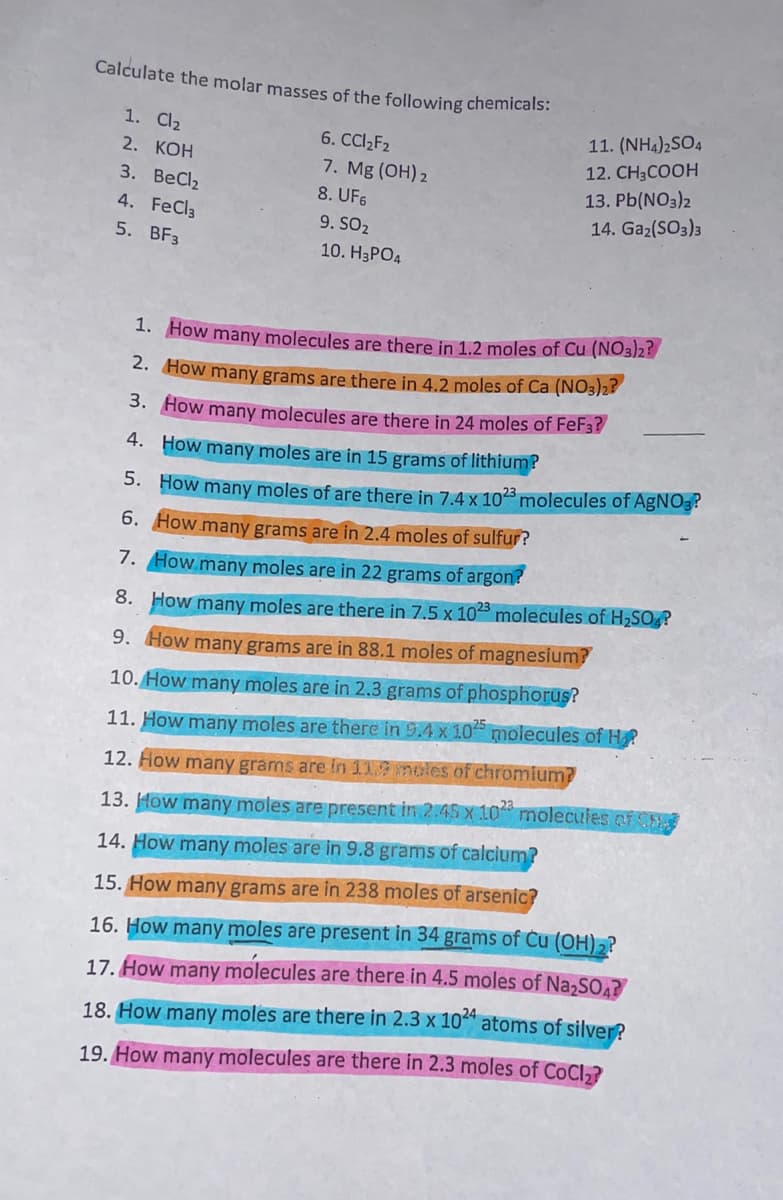 Calculate the molar masses of the following chemicals:
1. Cl₂
2. KOH
3. BeCl₂
4. FeCl₃
5. BF₃
6. CCl₂F₂
7. Mg (OH) ₂
8. UF₆
9. SO₂
10. H₃PO₄
11. (NH₄)₂SO₄
12. CH₃COOH
13. Pb(NO₃)₂
14. Ga₂(SO₃)₃
1. How many molecules are there in 1.2 moles of Cu (NO₃)₂?
2. How many grams are there in 4.2 moles of Ca (NO₃)₂?
3. How many molecules are there in 24 moles of FeF₃?
4. How many moles are in 15 grams of lithium?
5. How many moles of are there in 7.4 x 10²³ molecules of AgNO₃?
6. How many grams are in 2.4 moles of sulfur?
7. How many moles are in 22 grams of argon?
8. How many moles are there in 7.5 x 10²³ molecules of H₂SO₄?
9. How many grams are in 88.1 moles of magnesium?
10. How many moles are in 2.3 grams of phosphorus?
11. How many moles are there in 9.4 x 10²⁵ molecules of H₂?
12. How many grams are in 11.9 moles of chromium?
13. How many moles are present in 2.45 x 10²³ molecules of CH₄?
14. How many moles are in 9.8 grams of calcium?
15. How many grams are in 238 moles of arsenic?
16. How many moles are present in 34 grams of Cu (OH) ₂?
17. How many molecules are there in 4.5 moles of Na₂SO₄?
18. How many moles are there in 2.3 x 10²⁴ atoms of silver?
19. How many molecules are there in 2.3 moles of CoCl₂?